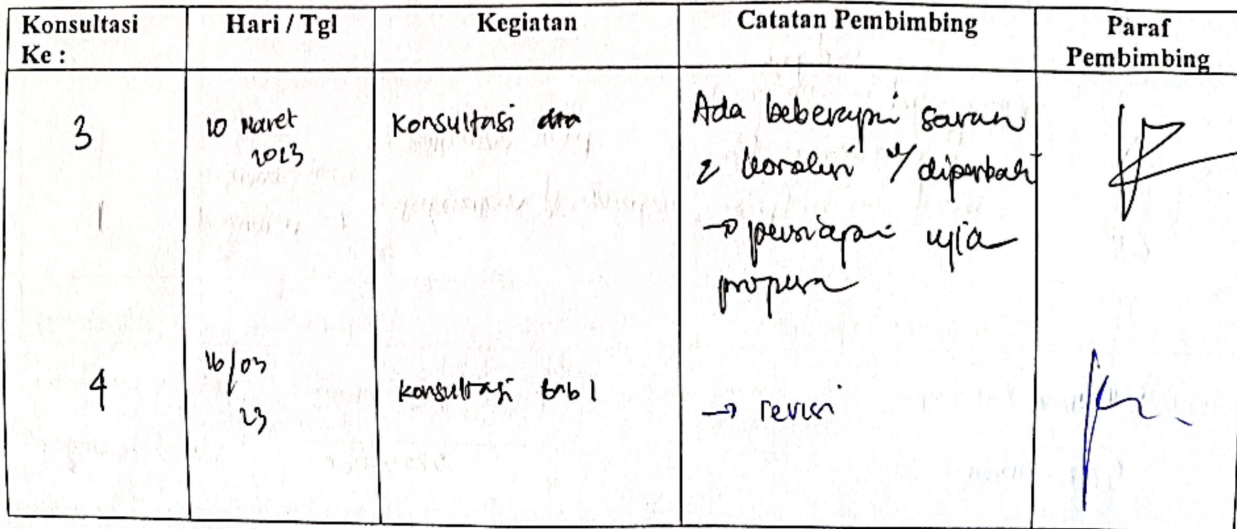 Konsultasi Ke :
Hari / Tgl
Kegiatan
Catatan Pembimbing
Paraf Pembimbing
3
10 Maret
2023
Konsultasi
Ada beberapa saran
& koreksi u/ diperbaiki
→ persiapan ujian
4
16/03
23
Konsultasi bab 1
→ revisi